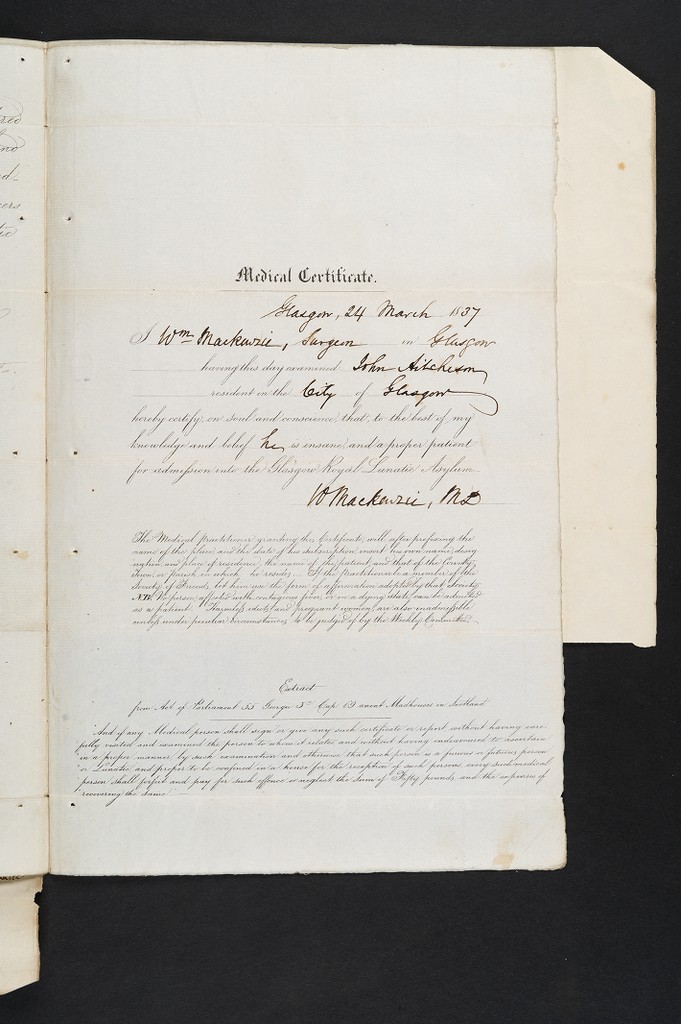 Medical Certificate.
Glasgow, 24 March 1837
I Wm Mackenzie, Surgeon in Glasgow
having this day examined John Aitcheson
resident in the City of Glasgow
hereby certify, on soul and conscience, that, to the best of my
knowledge and belief he is insane, and a proper patient
for admission into the Glasgow Royal Lunatic Asylum
W Mackenzie, MD
The Medical Practitioner granting this Certificate, will after prefixing the
name of the place, and the date of his subscription, insert his own name, desig
nation, and place of residence, the name of the patient, and that of the County,
Town, or Parish in which he resides. If the Practitioner be a member of the
Society of Friends, let him use the form of affirmation adopted by that Society.
NB. No person affected with contagious fever, or in a dying state, can be admitted
as a patient. Harmless idiots, and pregnant women, are also inadmissible
unless under peculiar circumstances, to be judged of by the Weekly Committee.
Extract
from Act of Parliament 55 George 3d Cap 69 anent Madhouses in Scotland
"And if any Medical person shall sign or give any such certificate or report without having care
fully visited and examined the person to whom it relates and without having endeavoured to ascertain
in a proper manner by such examination and otherwise that such person is a furious or fatuous person
or Lunatic and proper to be confined in a house for the reception of such persons every such medical
person shall forfeit and pay for such offence or neglect the Sum of Fifty pounds and the expenses of
recovering the same"